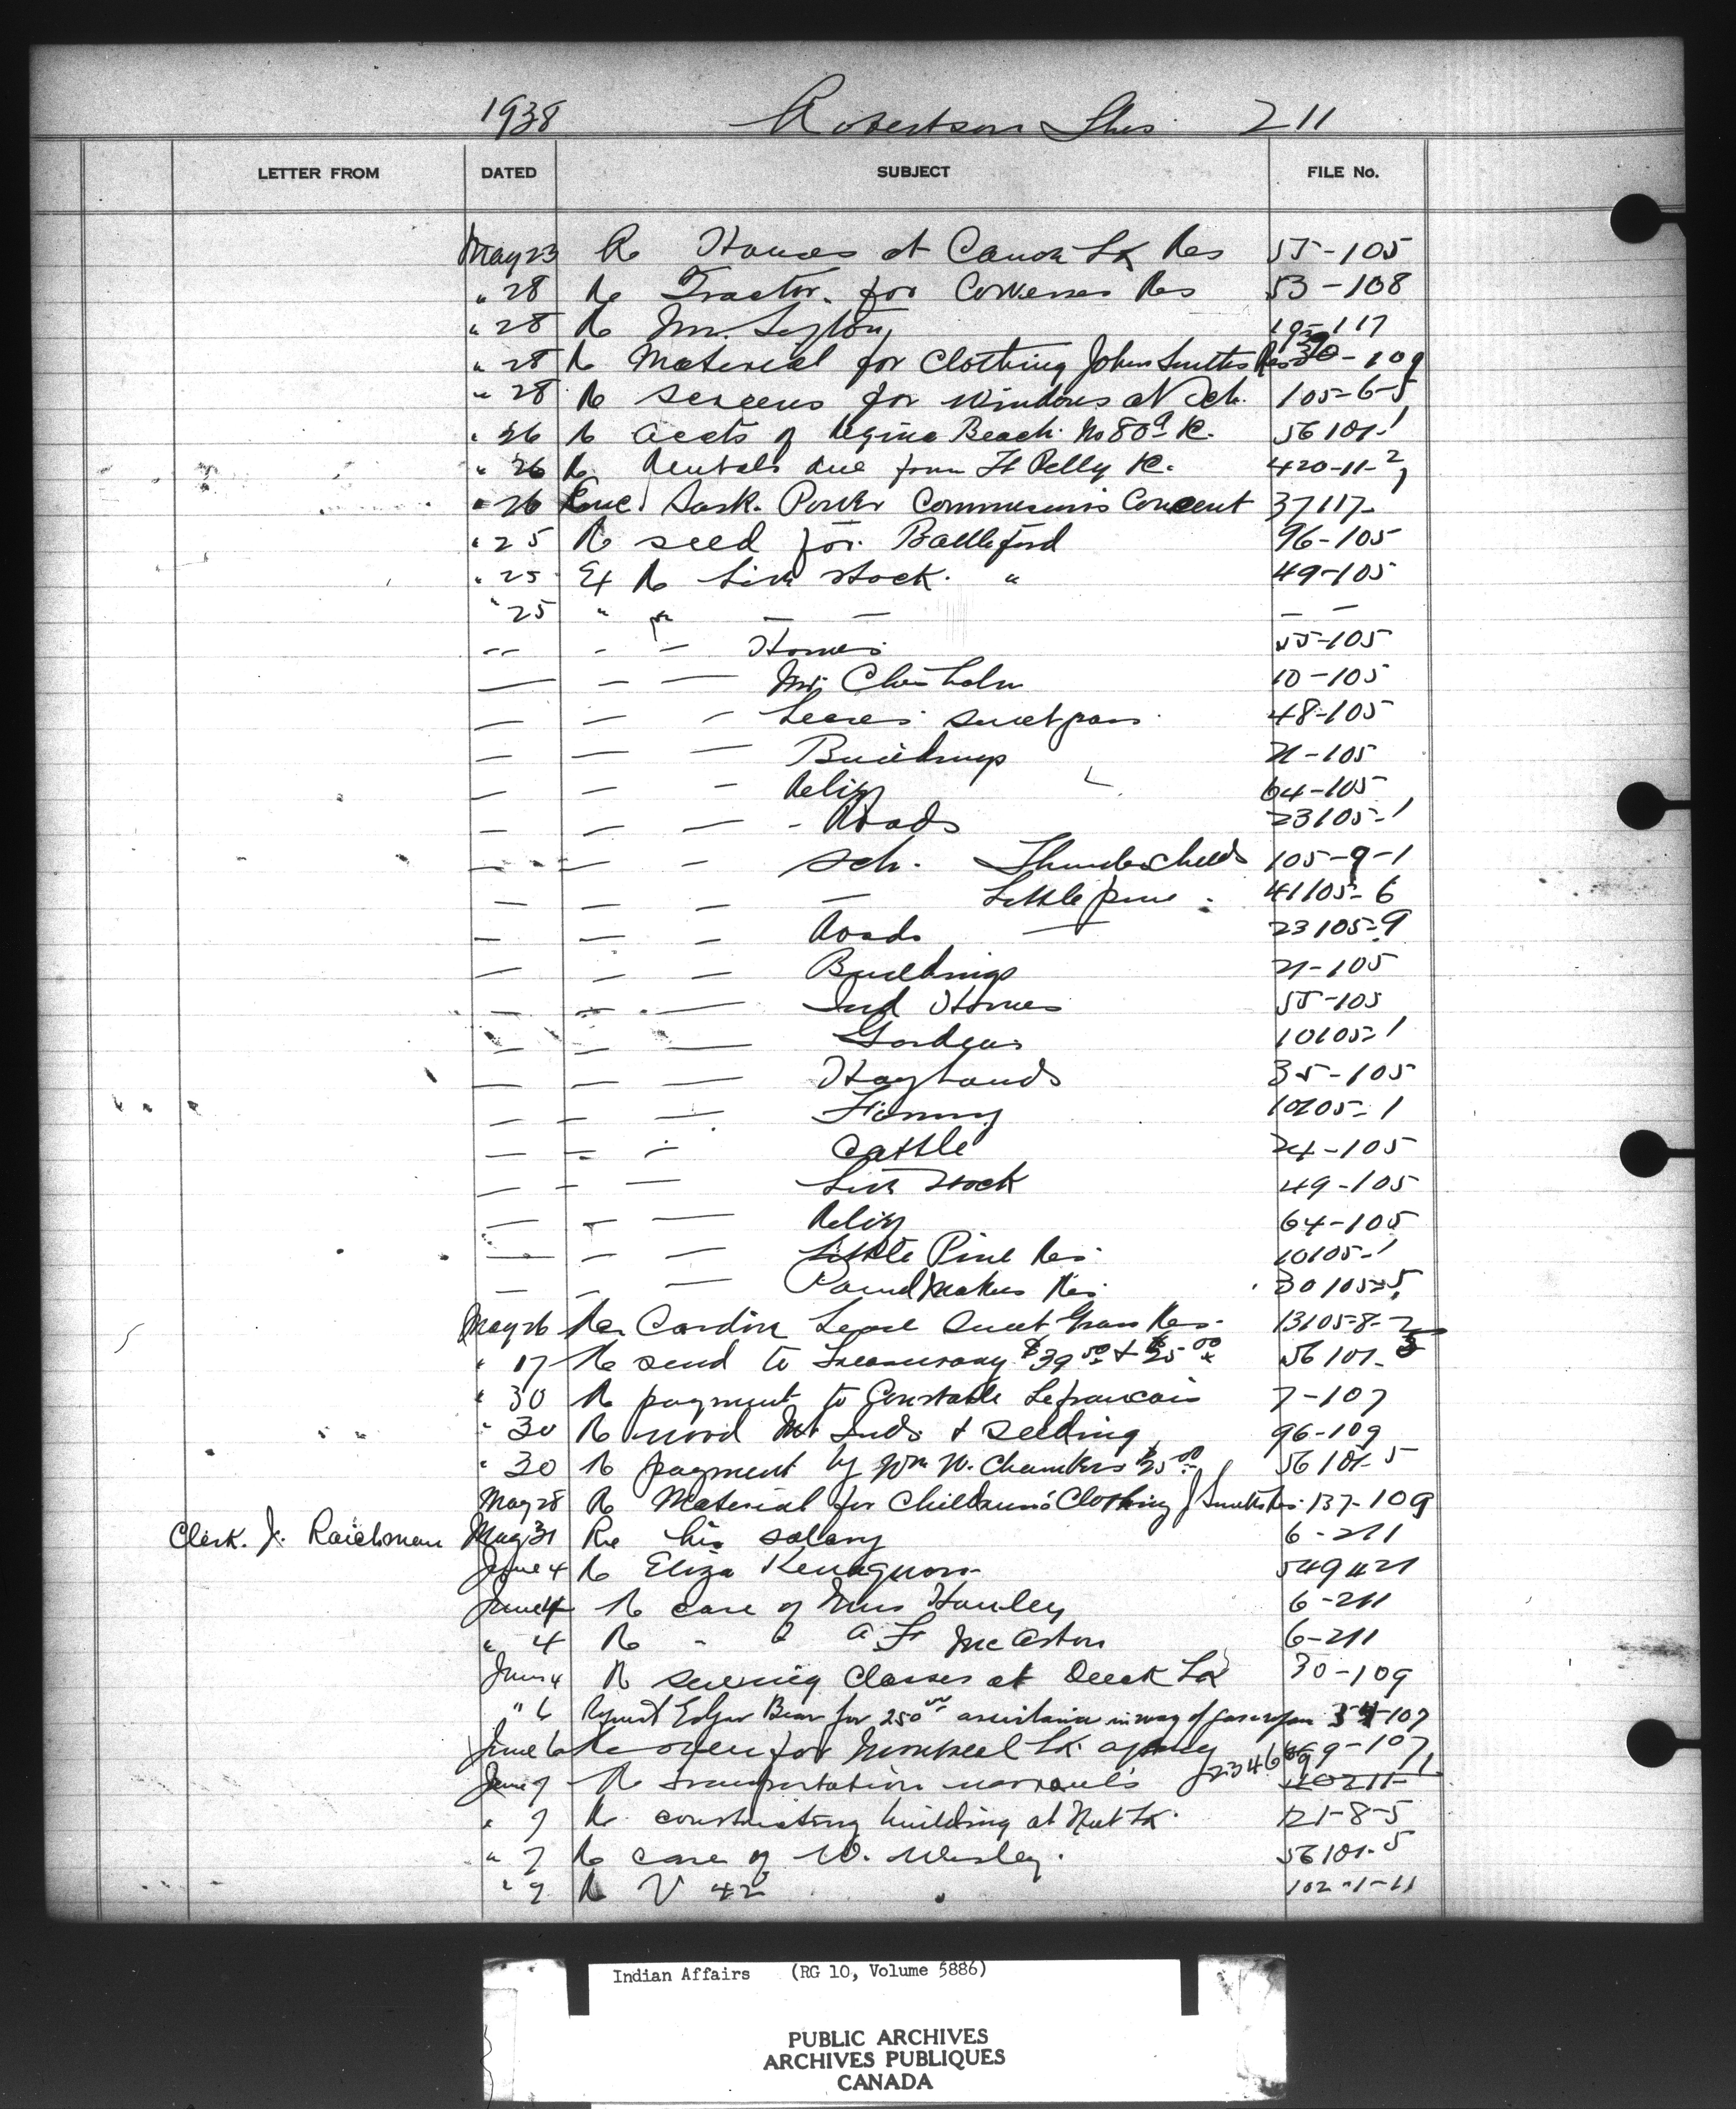 1938 Robertson Thos. 211
LETTER FROM DATED SUBJECT FILE No.
May 23 Re Houses at Canoe Lk Res 55-105
" 28 Re Tractor for Cowesses Res 53-108
" 28 Re Mr. 19-117
" 28 Re Material for Clothing John Smiths Res 30-109
" 28 Re screens for windows at Sch. 105-6-5
" 26 Re accts of Regina Beach No 80a R. 56101-1
" 26 Re Rentals due from Ft Pelly R. 420-11-2
" 26 Enc. Sask. Power Commissions Consent 37117-
" 25 Re seed for Battleford 96-105
" 25 Ex Re Live stock. " 49-105
" 25 " " — — —
-- - — Homes 55-105
— — — Mr. Chisholm 10-105
— — — Leases Sweetgrass 48-105
— — — Buildings 21-105
— — Relief 64-105
— — — - Roads 23105-1
— — - Sch. Thunderchilds 105-9-1
— — — — Little pine 41105-6
— — — Roads — 23105-9
— — — Buildings 21-105
— — — Ind Homes 55-105
— — — Gardens 10105-1
— — — Haylands 35-105
— — — 10105-1
— — — Cattle 24-105
— — — Live Stock 49-105
— — — Relief 64-105
— — — Little Pine Res. 10105-1
— — — Poundmakers Res. 30105-5
May 26 Re. Lease Sweet Grass Res. 13105-8-2
" 17 Re send to Treasury $39.50 & $25.00 56101-3
" 30 Re payment to Constable Lefrancois 7-107
" 30 Re Inds & seeding 96-109
" 30 Re payment by Wm W. Chambers $25.00 56101-5
May 28 Re Material for Childrens Clothing J Smiths Res. 137-109
Clerk. J. Raichman May 31 Re his salary 6-211
June 4 Re Eliza 549421
June 4 Re case of Miss Hanley 6-211
" 4 Re - " A F 6-211
June 4 Re sewing Classes at Lk 30-109
" 6 Request Edgar Bear for 250.00 assistance in way of 34-107
June 6 Re oxen for Montreal Lk. agency 9-107
June 7 Re transportation warrants 40211-1
" 7 Re constructing building at Nut Lk. 121-8-5
" 7 Re case of W. Wesley. 56101-5
" 7 Re V 42 102-1-11
Indian Affairs (RG 10, Volume 5886)
PUBLIC ARCHIVES
ARCHIVES PUBLIQUES
CANADA